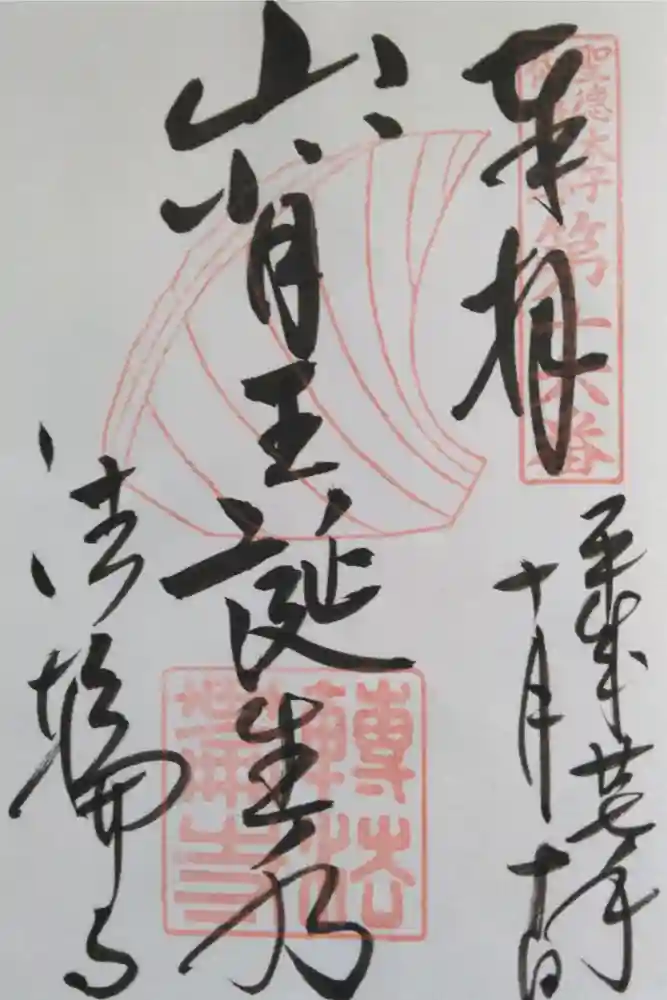 聖徳太子
第十六番
奉拝
平成廿七年
十月十日
山背王誕生乃
法輪寺
轉法
輪寺